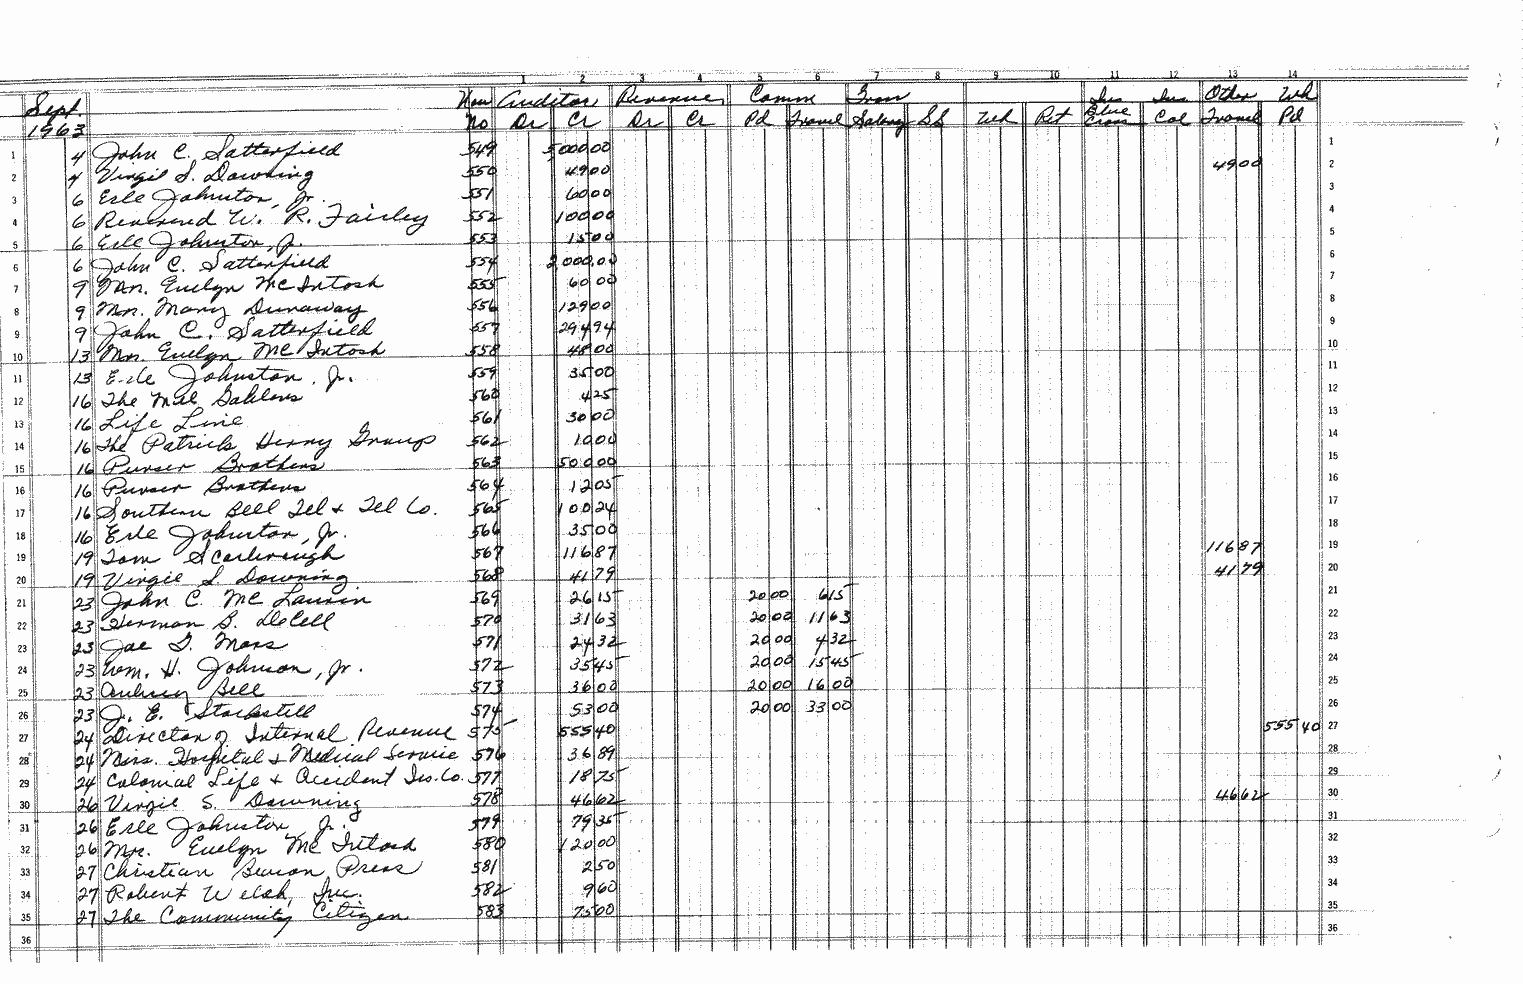 1 2 3 4 5 6 7 8 9 10 11 12 13 14
Sept. Auditor Revenue Comm Ins Ins Other Wh
1963 No Dr Cr Dr Cr Pd Travel Salary SS Wh Ret Blue Cross Col Travel Pd
1 4 John C. Satterfield 549 5,000 00 1
2 4 Virgil S. Downing 550 49 00 49 00 2
3 6 Erle Johnston, Jr. 551 60 00 3
4 6 Reverend W. R. Fairley 552 100 00 4
5 6 Erle Johnston, Jr. 553 15 00 5
6 6 John C. Satterfield 554 2,000.00 6
7 9 Mrs. Evelyn McIntosh 555 60 00 7
8 9 Mrs. Mary Dunaway 556 129 00 8
9 9 John C. Satterfield 557 294 94 9
10 13 Mrs. Evelyn McIntosh 558 48 00 10
11 13 Erle Johnston, Jr. 559 35 00 11
12 16 The 560 4 25 12
13 16 Life Line 561 30 00 13
14 16 The Patrick Henry Group 562 10 00 14
15 16 Purser Brothers 563 500 00 15
16 16 Purser Brothers 564 12 05 16
17 16 Southern Bell Tel & Tel Co. 565 100 24 17
18 16 Erle Johnston, Jr. 566 35 00 18
19 19 Tom Scarbrough 567 116 87 116 87 19
20 19 Virgil S Downing 568 41 79 41 79 20
21 23 John C. McLaurin 569 26 15 20 00 6 15 21
22 23 Herman B. DeCell 570 31 63 20 00 11 63 22
23 23 Joe G. Moss 571 24 32 20 00 4 32 23
24 23 Wm. H. Johnson, Jr. 572 35 45 20 00 15 45 24
25 23 Aubrey Bell 573 36 00 20 00 16 00 25
26 23 J. E. Stockstill 574 53 00 20 00 33 00 26
27 24 Director of Internal Revenue 575 555 40 555 40 27
28 24 Miss. Hospital & Medical Service 576 36 89 28
29 24 Colonial Life & Accident Ins. Co. 577 18 75 29
30 26 Virgil S. Downing 578 46 62 46 62 30
31 26 Erle Johnston, Jr. 579 79 35 31
32 26 Mrs. Evelyn McIntosh 580 120 00 32
33 27 Christian Beacon Press 581 2 50 33
34 27 Robert Welch, Inc. 582 9 60 34
35 27 The Community Citizen 583 75 00 35
36 36